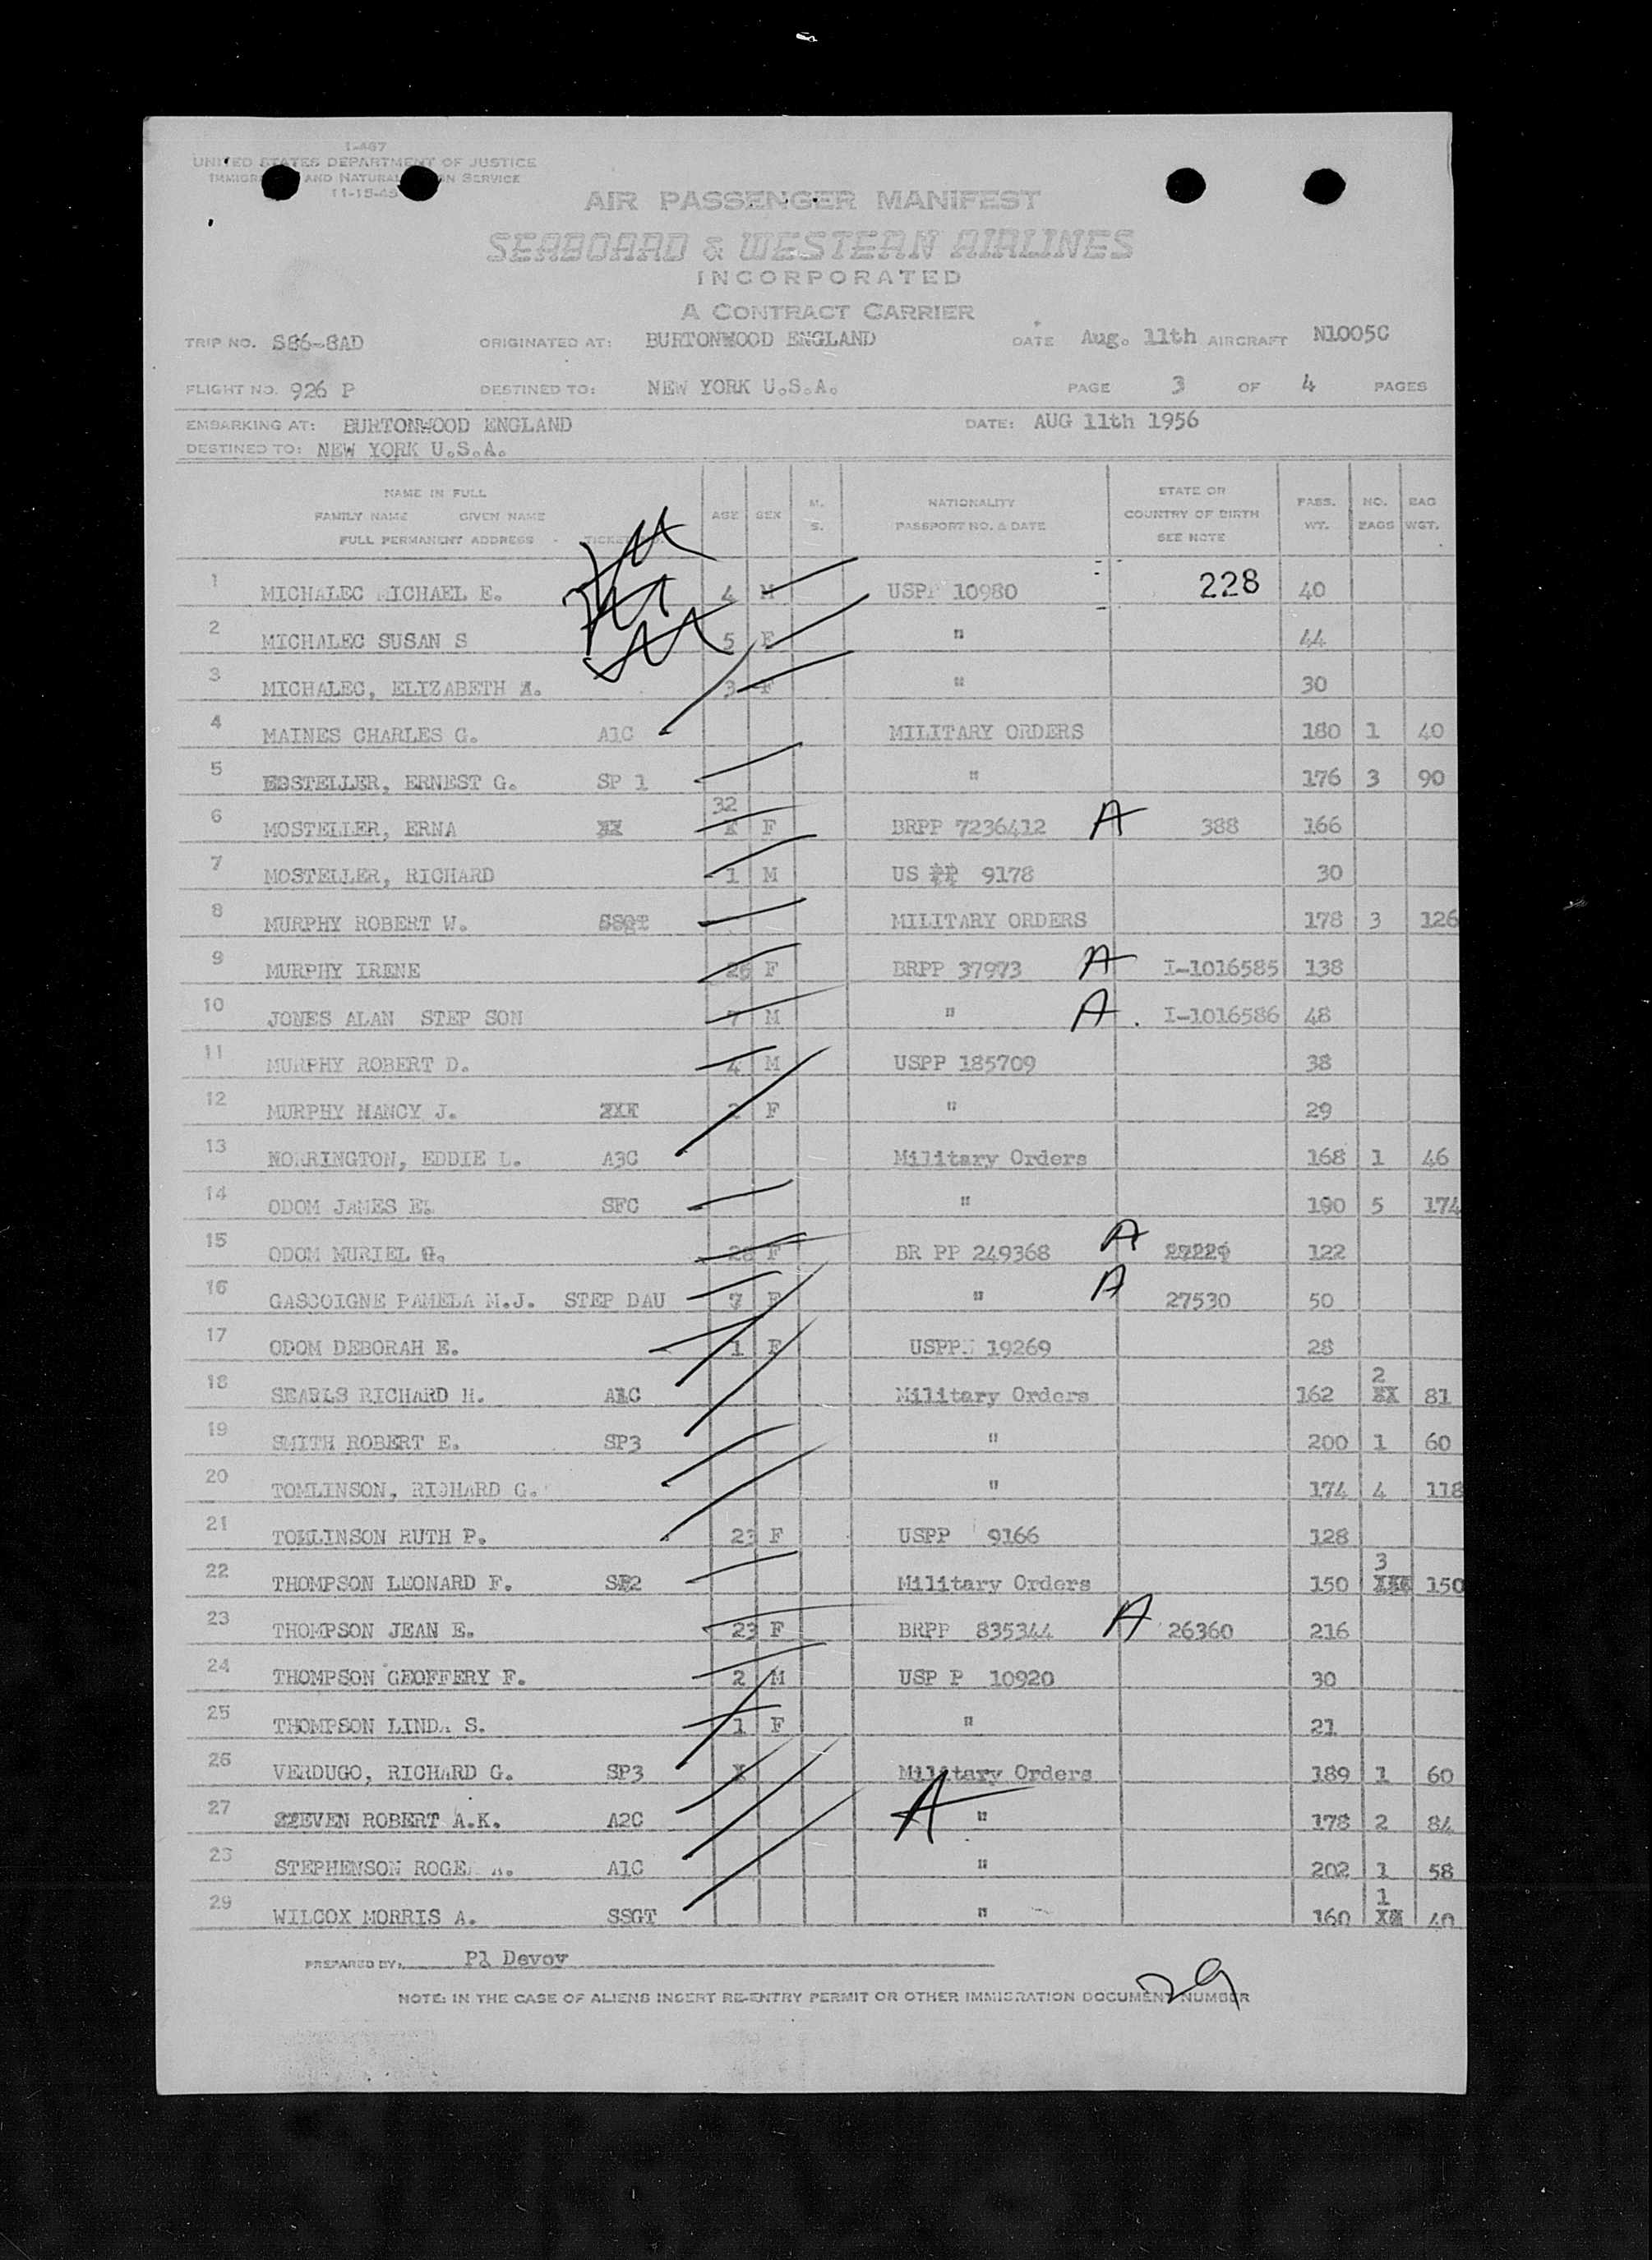 I-467
UNITED STATES DEPARTMENT OF JUSTICE
IMMIGR AND NATURAL ON SERVICE
11-15-45
AIR PASSENGER MANIFEST
SEABOARD & WESTERN AIRLINES
INCORPORATED
A CONTRACT CARRIER
TRIP NO. S86-8AD ORIGINATED AT: BURTONWOOD ENGLAND DATE Aug. 11th AIRCRAFT N1005C
FLIGHT NO. 926 P DESTINED TO: NEW YORK U.S.A. PAGE 3 OF 4 PAGES
EMBARKING AT: BURTONWOOD ENGLAND DATE: AUG 11th 1956
DESTINED TO: NEW YORK U.S.A.
NAME IN FULL
FAMILY NAME GIVEN NAME
FULL PERMANENT ADDRESS - TICKET AGE SEX M. S. NATIONALITY PASSPORT NO. & DATE STATE OR COUNTRY OF BIRTH SEE NOTE PASS. WT. NO. BAGS BAG WGT.
1 MICHALEC MICHAEL E. 4 M USPP 10980 228 40
2 MICHALEC SUSAN S 5 F " 44
3 MICHALEC, ELIZABETH 3 F " 30
4 MAINES CHARLES G. A1C MILITARY ORDERS 180 1 40
5 MOSTELLER, ERNEST G. SP 1 " 176 3 90
6 MOSTELLER, ERNA 32 F BRPP 7236412 A 388 166
7 MOSTELLER, RICHARD 1 M US PP 9178 30
8 MURPHY ROBERT W. SSgt MILITARY ORDERS 178 3 126
9 MURPHY IRENE 26 F BRPP 37973 A I-1016585 138
10 JONES ALAN STEP SON 7 M " A . I-1016586 48
11 MURPHY ROBERT D. 4 M USPP 185709 38
12 MURPHY NANCY J. 2 F " 29
13 NORRINGTON, EDDIE L. A3C Military Orders 168 1 46
14 ODOM JAMES E. SFC " 190 5 174
15 ODOM MURIEL G. 28 F BR PP 249368 A 122
16 GASCOIGNE PAMELA M.J. STEP DAU 7 F " A 27530 50
17 ODOM DEBORAH E. 1 F USPP. 19269 28
18 SEARLS RICHARD H. A1C Military Orders 162 2 81
19 SMITH ROBERT E. SP3 " 200 1 60
20 TOMLINSON, RICHARD G. " 174 4 118
21 TOMLINSON RUTH P. 23 F USPP 9166 128
22 THOMPSON LEONARD F. SP2 Military Orders 150 3 150
23 THOMPSON JEAN E. 23 F BRPP 835344 A 26360 216
24 THOMPSON GEOFFERY F. 2 M USP P 10920 30
25 THOMPSON LINDA S. 1 F " 21
26 VERDUGO, RICHARD G. SP3 X Military Orders 189 1 60
27 STEVEN ROBERT A.K. A2C A " 178 2 84
28 STEPHENSON ROGER A. A1C " 202 1 58
29 WILCOX MORRIS A. SSGT " 160 1 40
PREPARED BY: Pl Devoy
29
NOTE: IN THE CASE OF ALIENS INSERT RE-ENTRY PERMIT OR OTHER IMMIGRATION DOCUMENT NUMBER